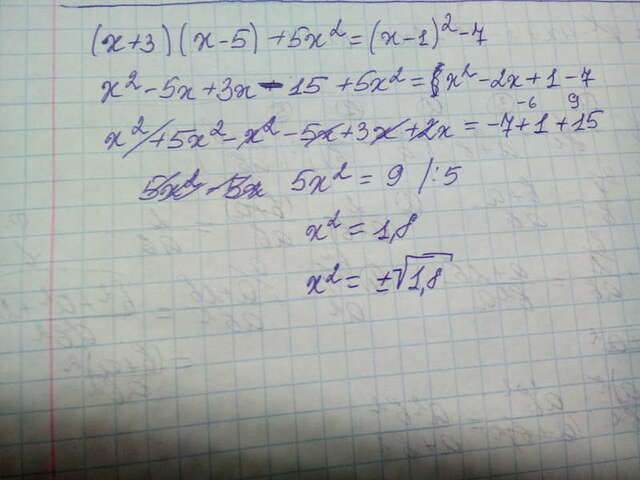 (x+3)(x-5)+5x²=(x-1)²-7
x²-5x+3x-15+5x²=x²-2x+1-7
-6 9
x²+5x²-x²-5x+3x+2x=-7+1+15
5x²-5x 5x²=9 /:5
x²=1,8
x²=±√1,8